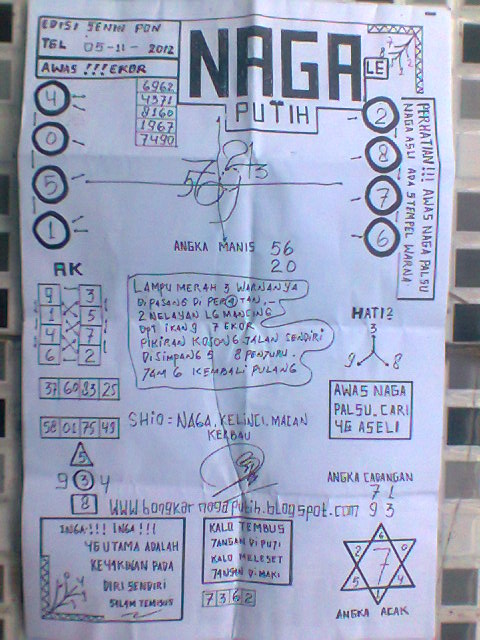 EDISI SENIN PON
TGL 05-11-2012
AWAS !!! EKOR
NAGA
LE
PUTIH
6962
4371
8160
1967
7490
4
0
5
1
2
8
7
6
PERHATIAN!!! AWAS NAGA PALSU
NAGA ASLI ADA STEMPEL WARNA
ANGKA MANIS 56
20
AK
9 3
1 5
4 7
6 2
LAMPU MERAH 3 WARNANYA
DIPASANG DI
2 NELAYAN LG MANCING
DPT IKAN 9 7 EKOR
PIKIRAN KOSONG JALAN SENDIRI
DISIMPANG 5 8 PENJURU.
JAM 6 KEMBALI PULANG
HATI2
3
9 8
37 60 83 25
58 01 75 49
AWAS NAGA
PALSU.CARI
YG ASELI
SHIO = NAGA, KELINCI, MACAN
KERBAU
5
9 3 4
8
ANGKA CADANGAN
71
93
www.bongkarnagaputih.blogspot.com
INGA!!! INGA!!!
YG UTAMA ADALAH
KEYAKINAN PADA
DIRI SENDIRI
SALAM TEMBUS
KALO TEMBUS
JANGAN DIPUJI
KALO MELESET
JANGAN DIMAKI
7362
7
ANGKA ACAK